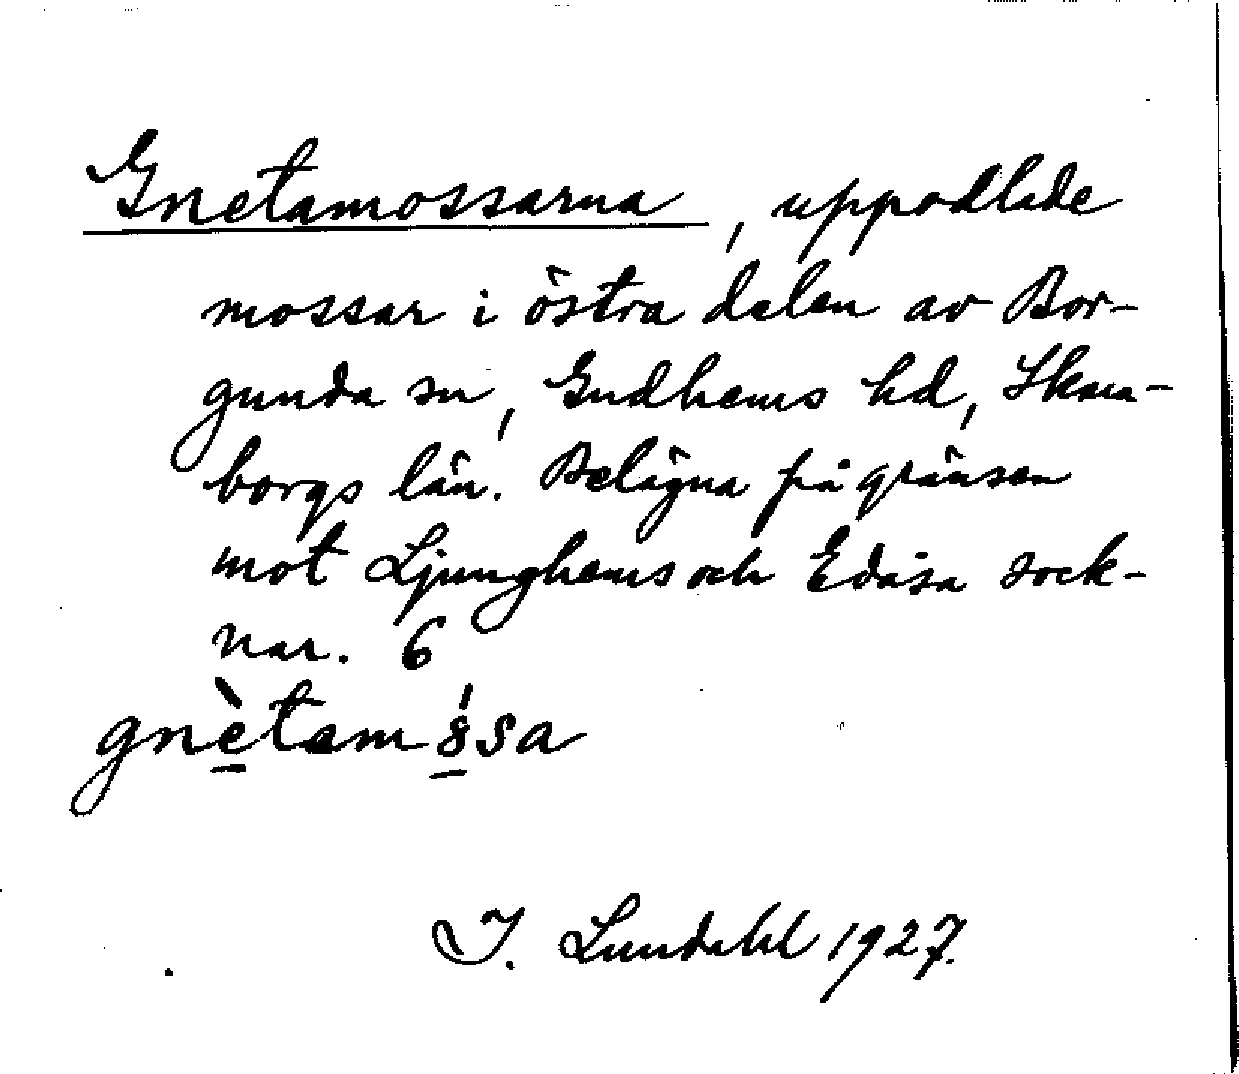 Gnetamossarna, uppodlade
mossar i östra delen av Bor-
gunda sn, Gudhems hd, Skara-
borgs län. Belägna på gränsen
mot Ljunghems och Edåsa sock-
nar. 6
gnètam8́ssa
I. Lundahl 1927.